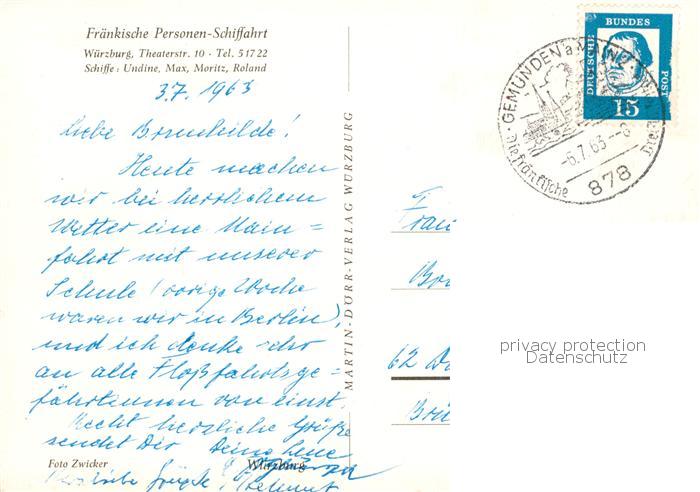 Fränkische Personen-Schiffahrt
Würzburg, Theaterstr. 10 · Tel. 51722
Schiffe: Undine, Max, Moritz, Roland
3.7.1963
Liebe Brunhilde!
Heute machen
wir bei herrlichem
Wetter eine Main=
fahrt mit unserer
Schule (vorige Woche
waren wir in Berlin),
und ich denke sehr
an alle Floßfahrtsge=
fährtinnen von einst.
Recht herzliche Grüße
sendet Dir Deine
Herzliche Grüße Helmut
Foto Zwicker
Würzburg
MARTIN-DÖRR-VERLAG WÜRZBURG
DEUTSCHE
BUNDES
POST
15
GEMÜNDEN a. MAIN
-6.7.63--8
878
Die fränkische
Frau
62
privacy protection
Datenschutz